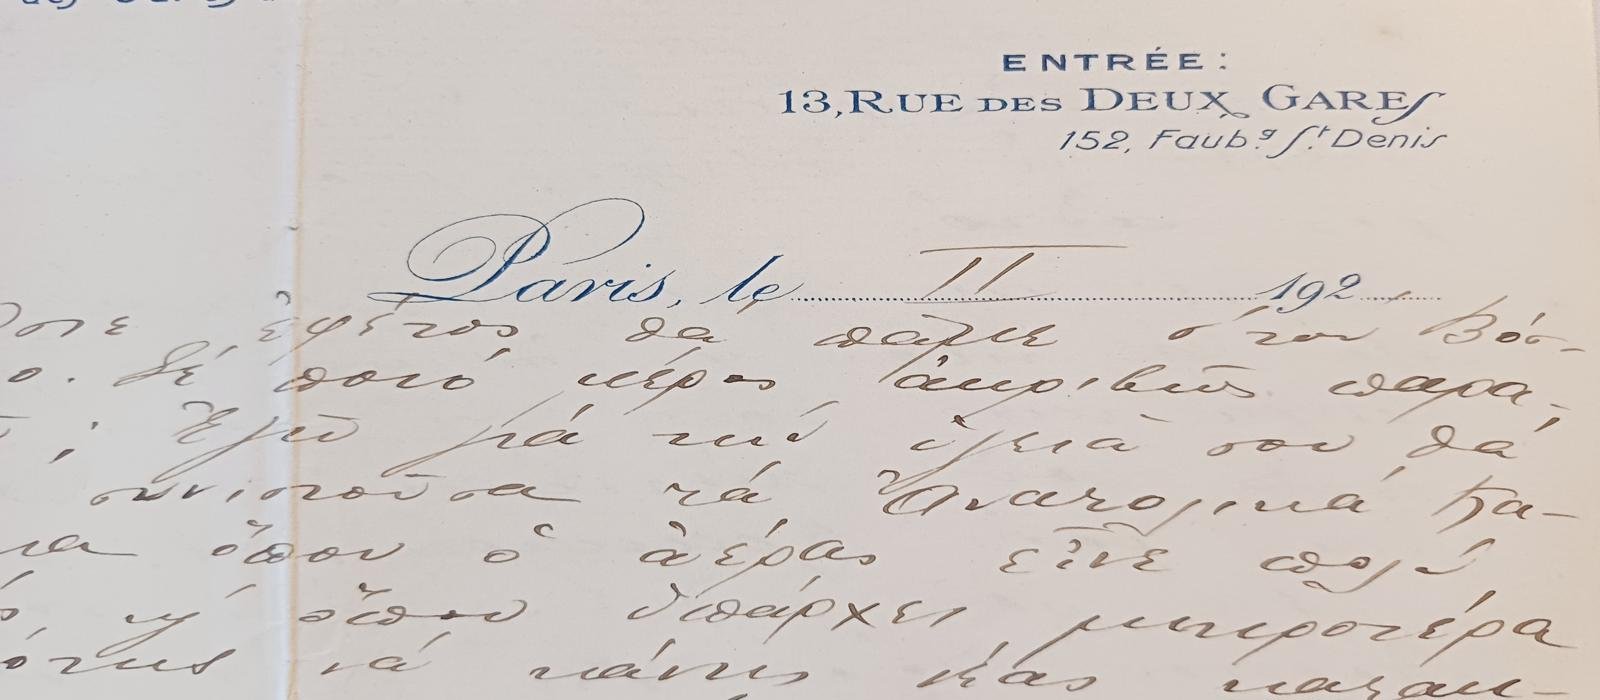 ENTRÉE:
13, RUE DES DEUX GARES
152, Faubg St Denis
Paris, le II 192
ἐφέτος θὰ πᾶμε στὸν Βόσ-
ο. Σὲ ποιό μέρος ἀκριβῶς παρα-
; Ἐγὼ γιὰ τὴν ὑγειά σου θὰ
συνιστοῦσα τὰ Ἀνατολικά Κα-
ὅπου ὁ ἀέρας εἶνε πολύ
ἢ ὅπου ὑπάρχει μικροτέρα
νὰ κάνῃς